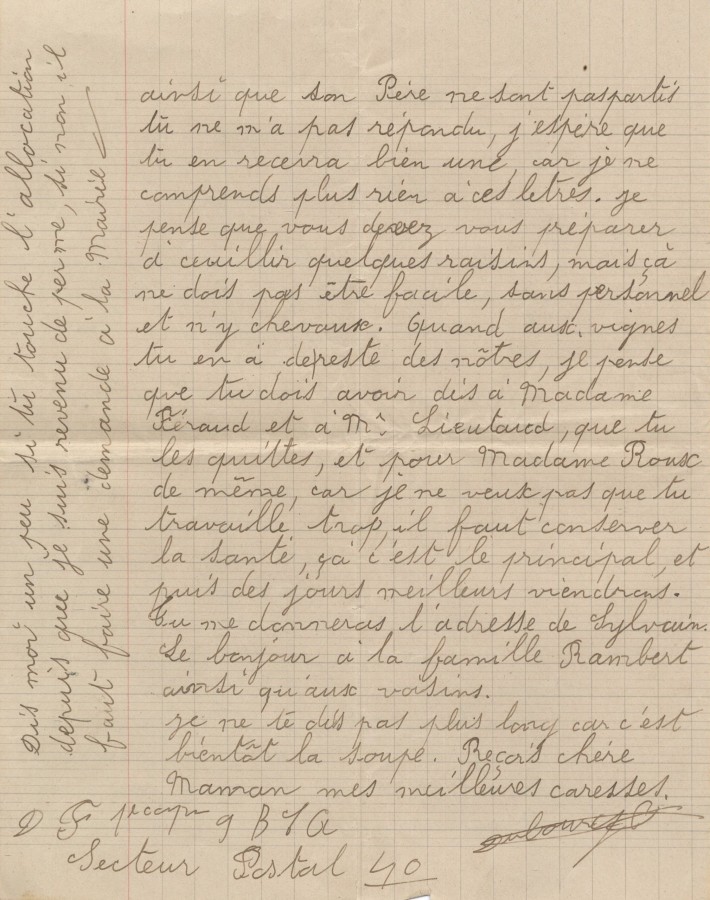 ainsi que son Père ne sont paspartis
tu ne m'a pas répondu, j'espère que
tu en recevra bien une, car je ne
comprends plus rien à ces letres. je
pense que vous devez vous préparer
à ceuillir quelques raisins, mais çà
ne dois pas être facile, sans personnel
et n'y chevaux. Quand aux vignes
tu en à de reste des nôtres, je pense
que tu dois avoir dis à Madame
Féraud et à Mr. Lieutaud, que tu
les quittes, et pour Madame Roux
de même, car je ne veux pas que tu
travaille trop, il faut conserver
la santé, çà c'est le principal, et
puis des jours meilleurs viendrons.
Tu me donneras l'adresse de Sylvain.
Le bonjour à la famille Rambert
ainsi qu'aux voisins.
je ne te dis pas plus long car c'est
bientôt la soupe. Reçois chére
Maman mes meilleures caresses.
D F 9 B
Secteur Postal 40
Dis moi un peu si tu touche l'allocation
depuis que je suis revenu de perme, si non il
faut faire une demande à la Mairie